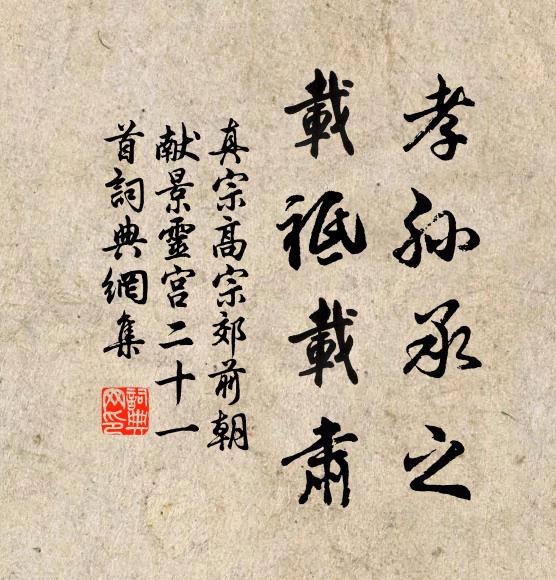 孝孙承之
載祗載肅
真宗高宗郊前朝
献景靈宫二十一
首詞典網集
詞典
网印